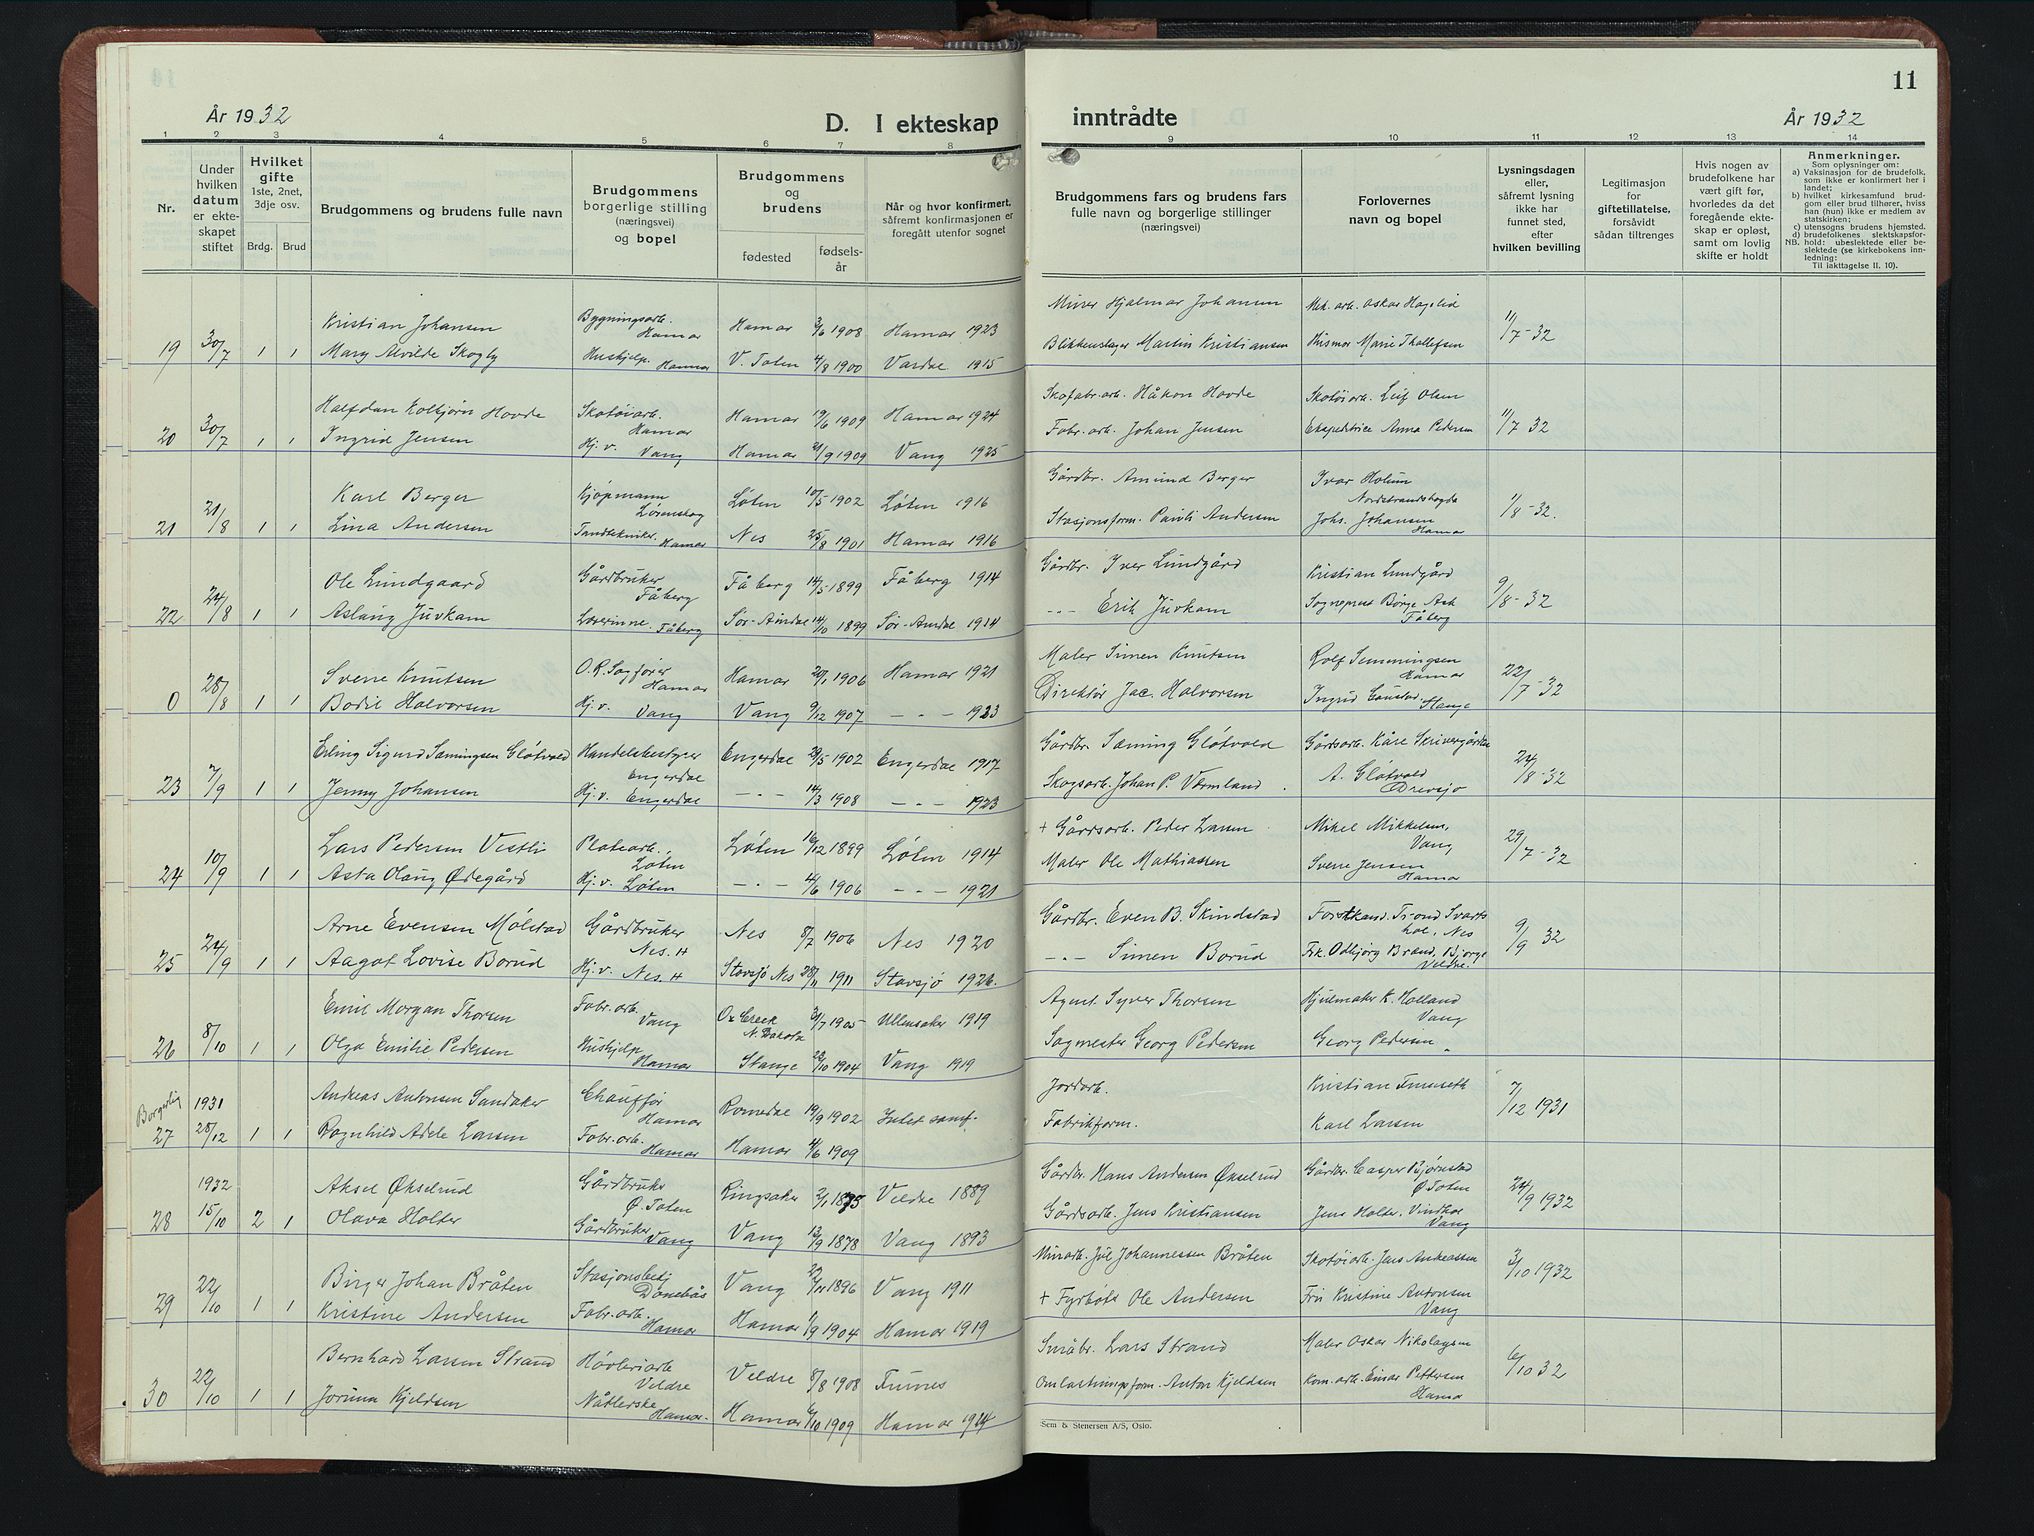 11
År 1932
D. I ekteskap inntrådte
År 1932
1 2 3 4 5 6 7 8 9 10 11 12 13 14
Nr.
Under hvilken datum er ekteskapet stiftet
Hvilket gifte 1ste, 2net, 3dje osv.
Brdg. Brud
Brudgommens og brudens fulle navn
Brudgommens borgerlige stilling (næringsvei) og bopel
Brudgommens og brudens
fødested
fødselsår
Når og hvor konfirmert, såfremt konfirmasjonen er foregått utenfor sognet
Brudgommens fars og brudens fars fulle navn og borgerlige stillinger (næringsvei)
Forlovernes navn og bopel
Lysningsdagen eller, såfremt lysning ikke har funnet sted, efter hvilken bevilling
Legitimasjon for giftetillatelse, forsåvidt sådan tiltrenges
Hvis nogen av brudefolkene har vært gift før, hvorledes da det foregående ekteskap er opløst, samt om lovlig skifte er holdt
Anmerkninger.
Som oplysninger om:
a) Vaksinasjon for de brudefolk, som ikke er konfirmert her i landet;
b) hvilket kirkesamfund brudgom eller brud tilhører, hviss han (hun) ikke er medlem av statskirken;
c) utensogns brudens hjemsted.
d) brudefolkenes slektskapsforhold: ubeslektede eller beslektede (se kirkebokens innledning:
NB. Til iakttagelse II. 10).
19 30/7 1 1 Kristian Johansen Bygningsarb. Hamar Hamar 3/6 1908 Hamar 1923 Murer Hjalmar Johansen Mek. arb. Oskar Hagelid 11/7-32
Mary Alvilde Skogly Hushjelp. Hamar V. Toten 4/8 1900 Vardal 1915 Blikkenslager Martin Kristiansen Marie Thollefsen
20 30/7 1 1 Halfdan Kolbjørn Hovde Skotøiarb. Hamar Hamar 19/6 1909 Hamar 1924 Skofabr. arb. Håkon Hovde Skotøiarb. Leif Olsen 11/7 32
Ingrid Jensen Hj. v. Vang Hamar 21/9 1909 Vang 1925 Fabr. arb. Johan Jensen Ekspeditrice Anna Pedersen
21 21/8 1 1 Karl Berger Kjøpmann Lørenskog Løten 10/5 1902 Løten 1916 Gårdbr. Amund Berger Ivar Holum Nordstrandshøgda 1/8-32.
Lina Andersen Tandtekniker. Hamar Nes 25/8 1901 Hamar 1916 Stasjonsform. Pauli Andersen Johs. Johansen Hamar
22 24/8 1 1 Ole Lundgaard Gårdbruker Fåberg Fåberg 14/5 1899 Fåberg 1914 Gårdbr. Iver Lundgård Kristian Lundgård 9/8-32
Aslaug Juvkam Lærerinne. Fåberg Sør-Aurdal 14/10 1899 Sør-Aurdal 1914 -.- Erik Juvkam Sogneprest Børge Ask Fåberg
0 28/8 1 1 Sverre Knutsen O. R. Sagfører Hamar Hamar 20/1 1906 Hamar 1921 Maler Simen Knutsen Rolf Simmingsen Hamar 22/7-32
Bodil Halvorsen Hj. v. Vang Vang 9/12 1907 -.- 1923 Direktør Jac. Halvorsen Ingrid Stange
23 7/9 1 1 Erling Sigurd Sæmingsen Gløtvold Handelsbestyrer Engerdal Engerdal 29/5 1902 Engerdal 1917 Gårdbr. Sæming Gløtvold Gårdsarb. Kåre 24/8-32
Jenny Johansen Hj. v. Engerdal -.- 14/3 1908 -.- 1923 Skogsarb. Johan P. Værmland. A. Gløtvold Drevsjø
24 10/9 1 1 Lars Pedersen Vestli Platearb. Løten Løten 16/12 1899 Løten 1914 + Gårdsarb. Peder Larsen Mikel Mikkelsen, Vang 29/7-32
Asta Olaug Ødegård Hj. v. Løten -.- 4/6 1906 -.- 1921 Maler Ole Mathiassen Sverre Jensen Hamar
25 24/9 1 1 Arne Evensen Mølstad Gårdbruker Nes. H Nes 8/7 1906 Nes 1920 Gårdbr. Even B. Skindstad Forstkand. Trond Svartshol, Nes 9/9 32
Aagot Lovise Borud Hj. v. Nes. H Stavsjø Nes 28/11 1911 Stavsjø 1926. -.- Simen Borud Frk. Odbjørg Brænd, Bjørge Veldre.
26 8/10 1 1 Emil Morgan Thorsen Fabr. arb. Vang Ox Creek N. Dakota 31/7 1905 Ullensaker 1919 Agent. Syver Thorsen Hjulmaker K. Holland Vang
Olga Emilie Pedersen Hushjelp Hamar Stange 23/10 1904 Vang 1919 Sagmester Georg Pedersen Georg Pedersen "
Borgerlig 27 1931 28/12 1 1 Andreas Antonsen Sandaker Chauffør Hamar Romedal 19/9 1902 Intet samf. Jordarb. Kristian Furuseth 7/12 1931
Ragnhild Adele Larsen Fabr. arb. Hamar Hamar 4/6 1909 Fabrikform. Karl Larsen
28 1932 15/10 2 1 Aksel Økselrud Gårdbruker Ø. Toten Ringsaker 2/1 1875 Veldre 1889 Gårdbr. Hans Andersen Økselrud Gårdbr. Casper Bjørnstad Ø Toten 24/9 1932
Olava Holter Gårdbruker Vang Vang 13/9 1878 Vang 1893 Gårdsarb. Jens Kristiansen Jens Holter, Vang
29 22/10 1 1 Birger Johan Bråten Stasjonsbetj Dombås Vang 1896 Vang 1911 Murarb. Joh Johannessen Bråten Skotøiarb. Jens Andreassen 3/10 1932
Kristine Andersen Fabr. arb. Hamar Hamar 1/9 1904 Hamar 1919 + Fyrbøt. Ole Andersen Fru Kristine Antonsen Vang
30 22/10 1 1 Bernhard Larsen Strand Høvleriarb Veldre Veldre 8/8 1908 Furnes Småbr. Lars Strand Maler Oskar Nikolaysen 6/10 32
Jorunn Kjeldsen Nåtlerske Hamar. Hamar 6/10 1909 Hamar 1924 Omlastningsform. Anton Kjeldsen Kom. arb. Einar Pettersen Hamar
Sem & Stenersen A/S, Oslo.